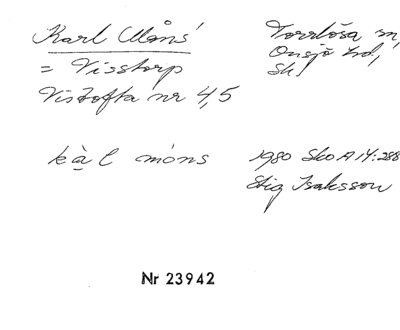 Karl Måns'
= Visstorp
Vistofta nr 4,5
Torrlösa sn
Onsjö hd,
Sk.
kà̱l móns
1980 Sko A 14:288
Stig Isaksson
Nr 23942